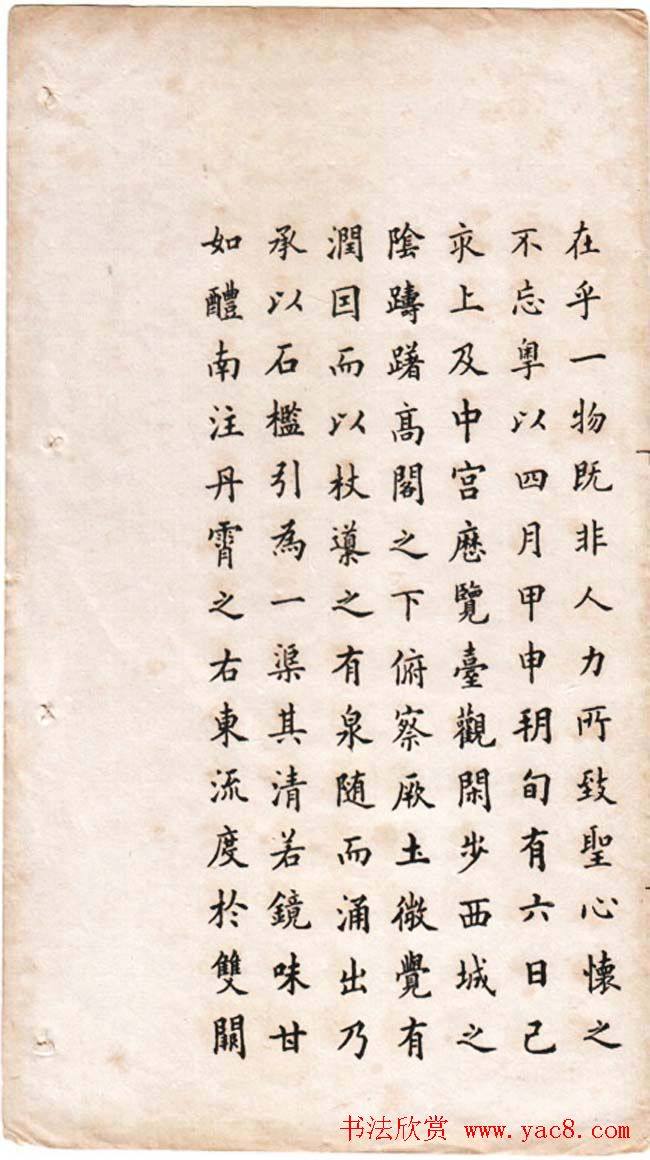 在乎一物既非人力所致聖心懷之
不忘粤以四月甲申朔旬有六日己
亥上及中宮歷覽臺觀閑步西城之
陰躊躇高閣之下俯察厥土微覺有
潤因而以杖導之有泉随而涌出乃
承以石檻引為一渠其清若鏡味甘
如醴南注丹霄之右東流度於雙闕
书法欣赏 www.yac8.com